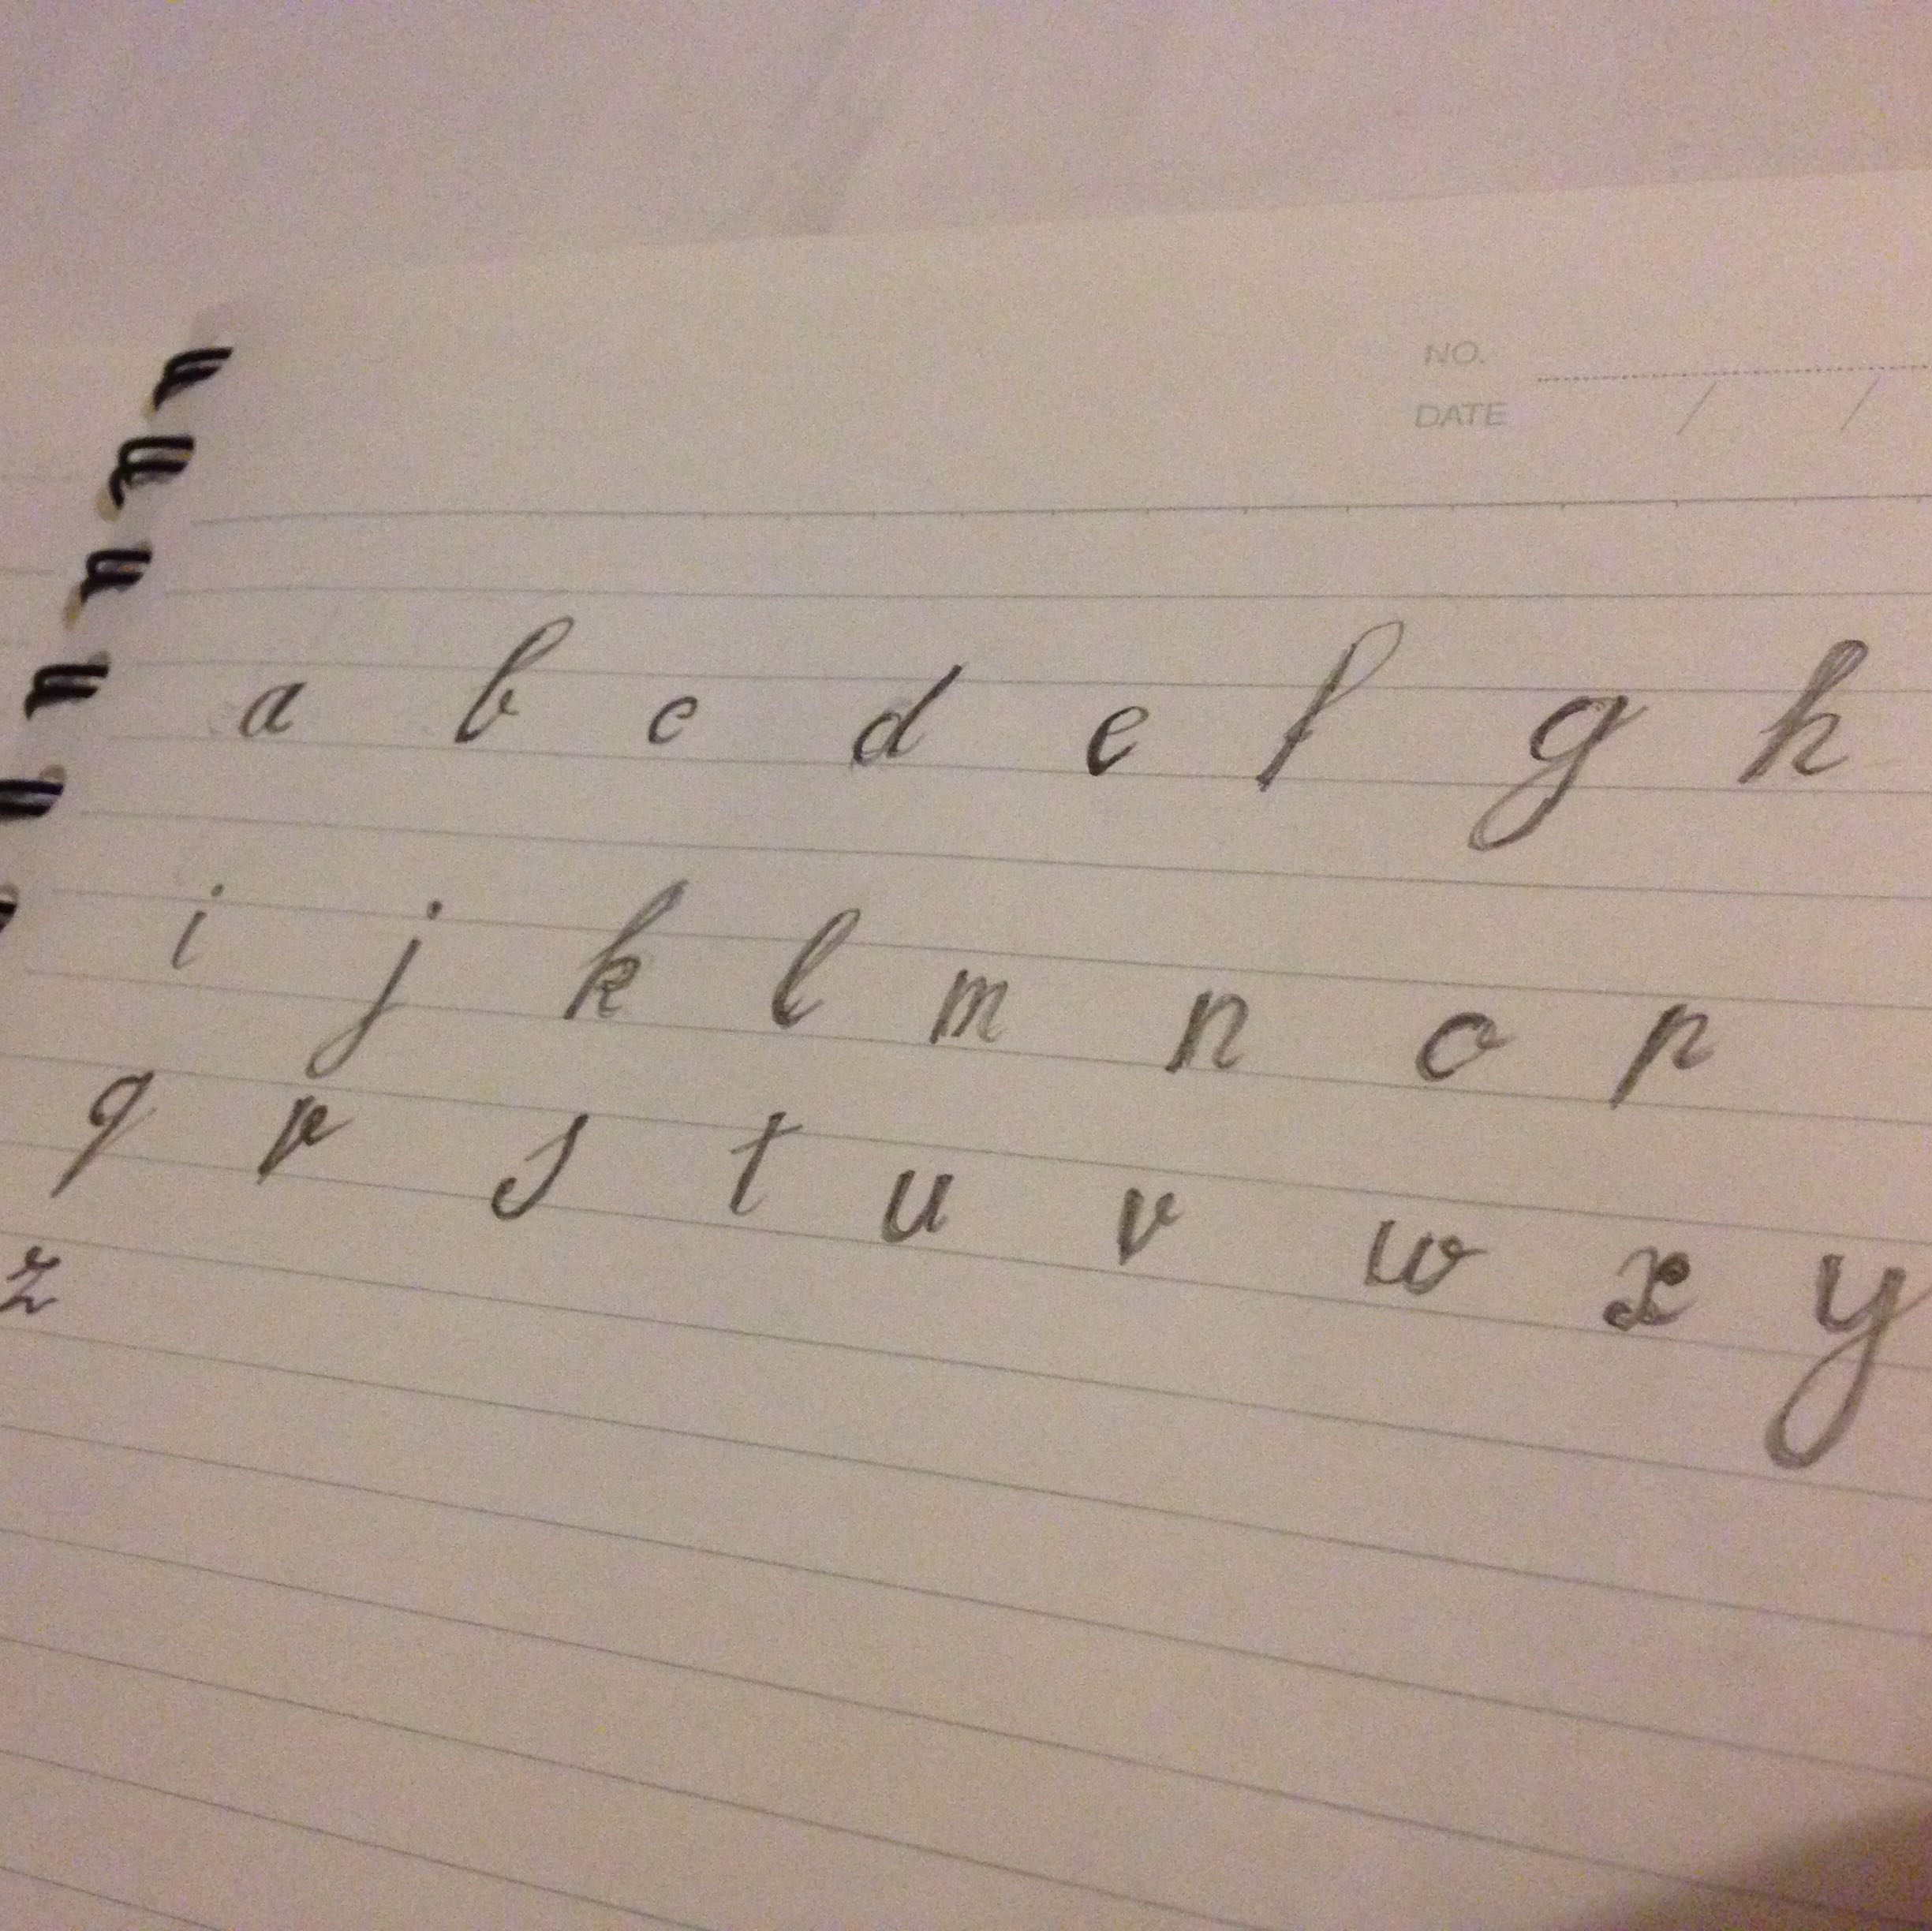 NO.
DATE / /
a b c d e f g h
i j k l m n o p
q r s t u v w x y
z